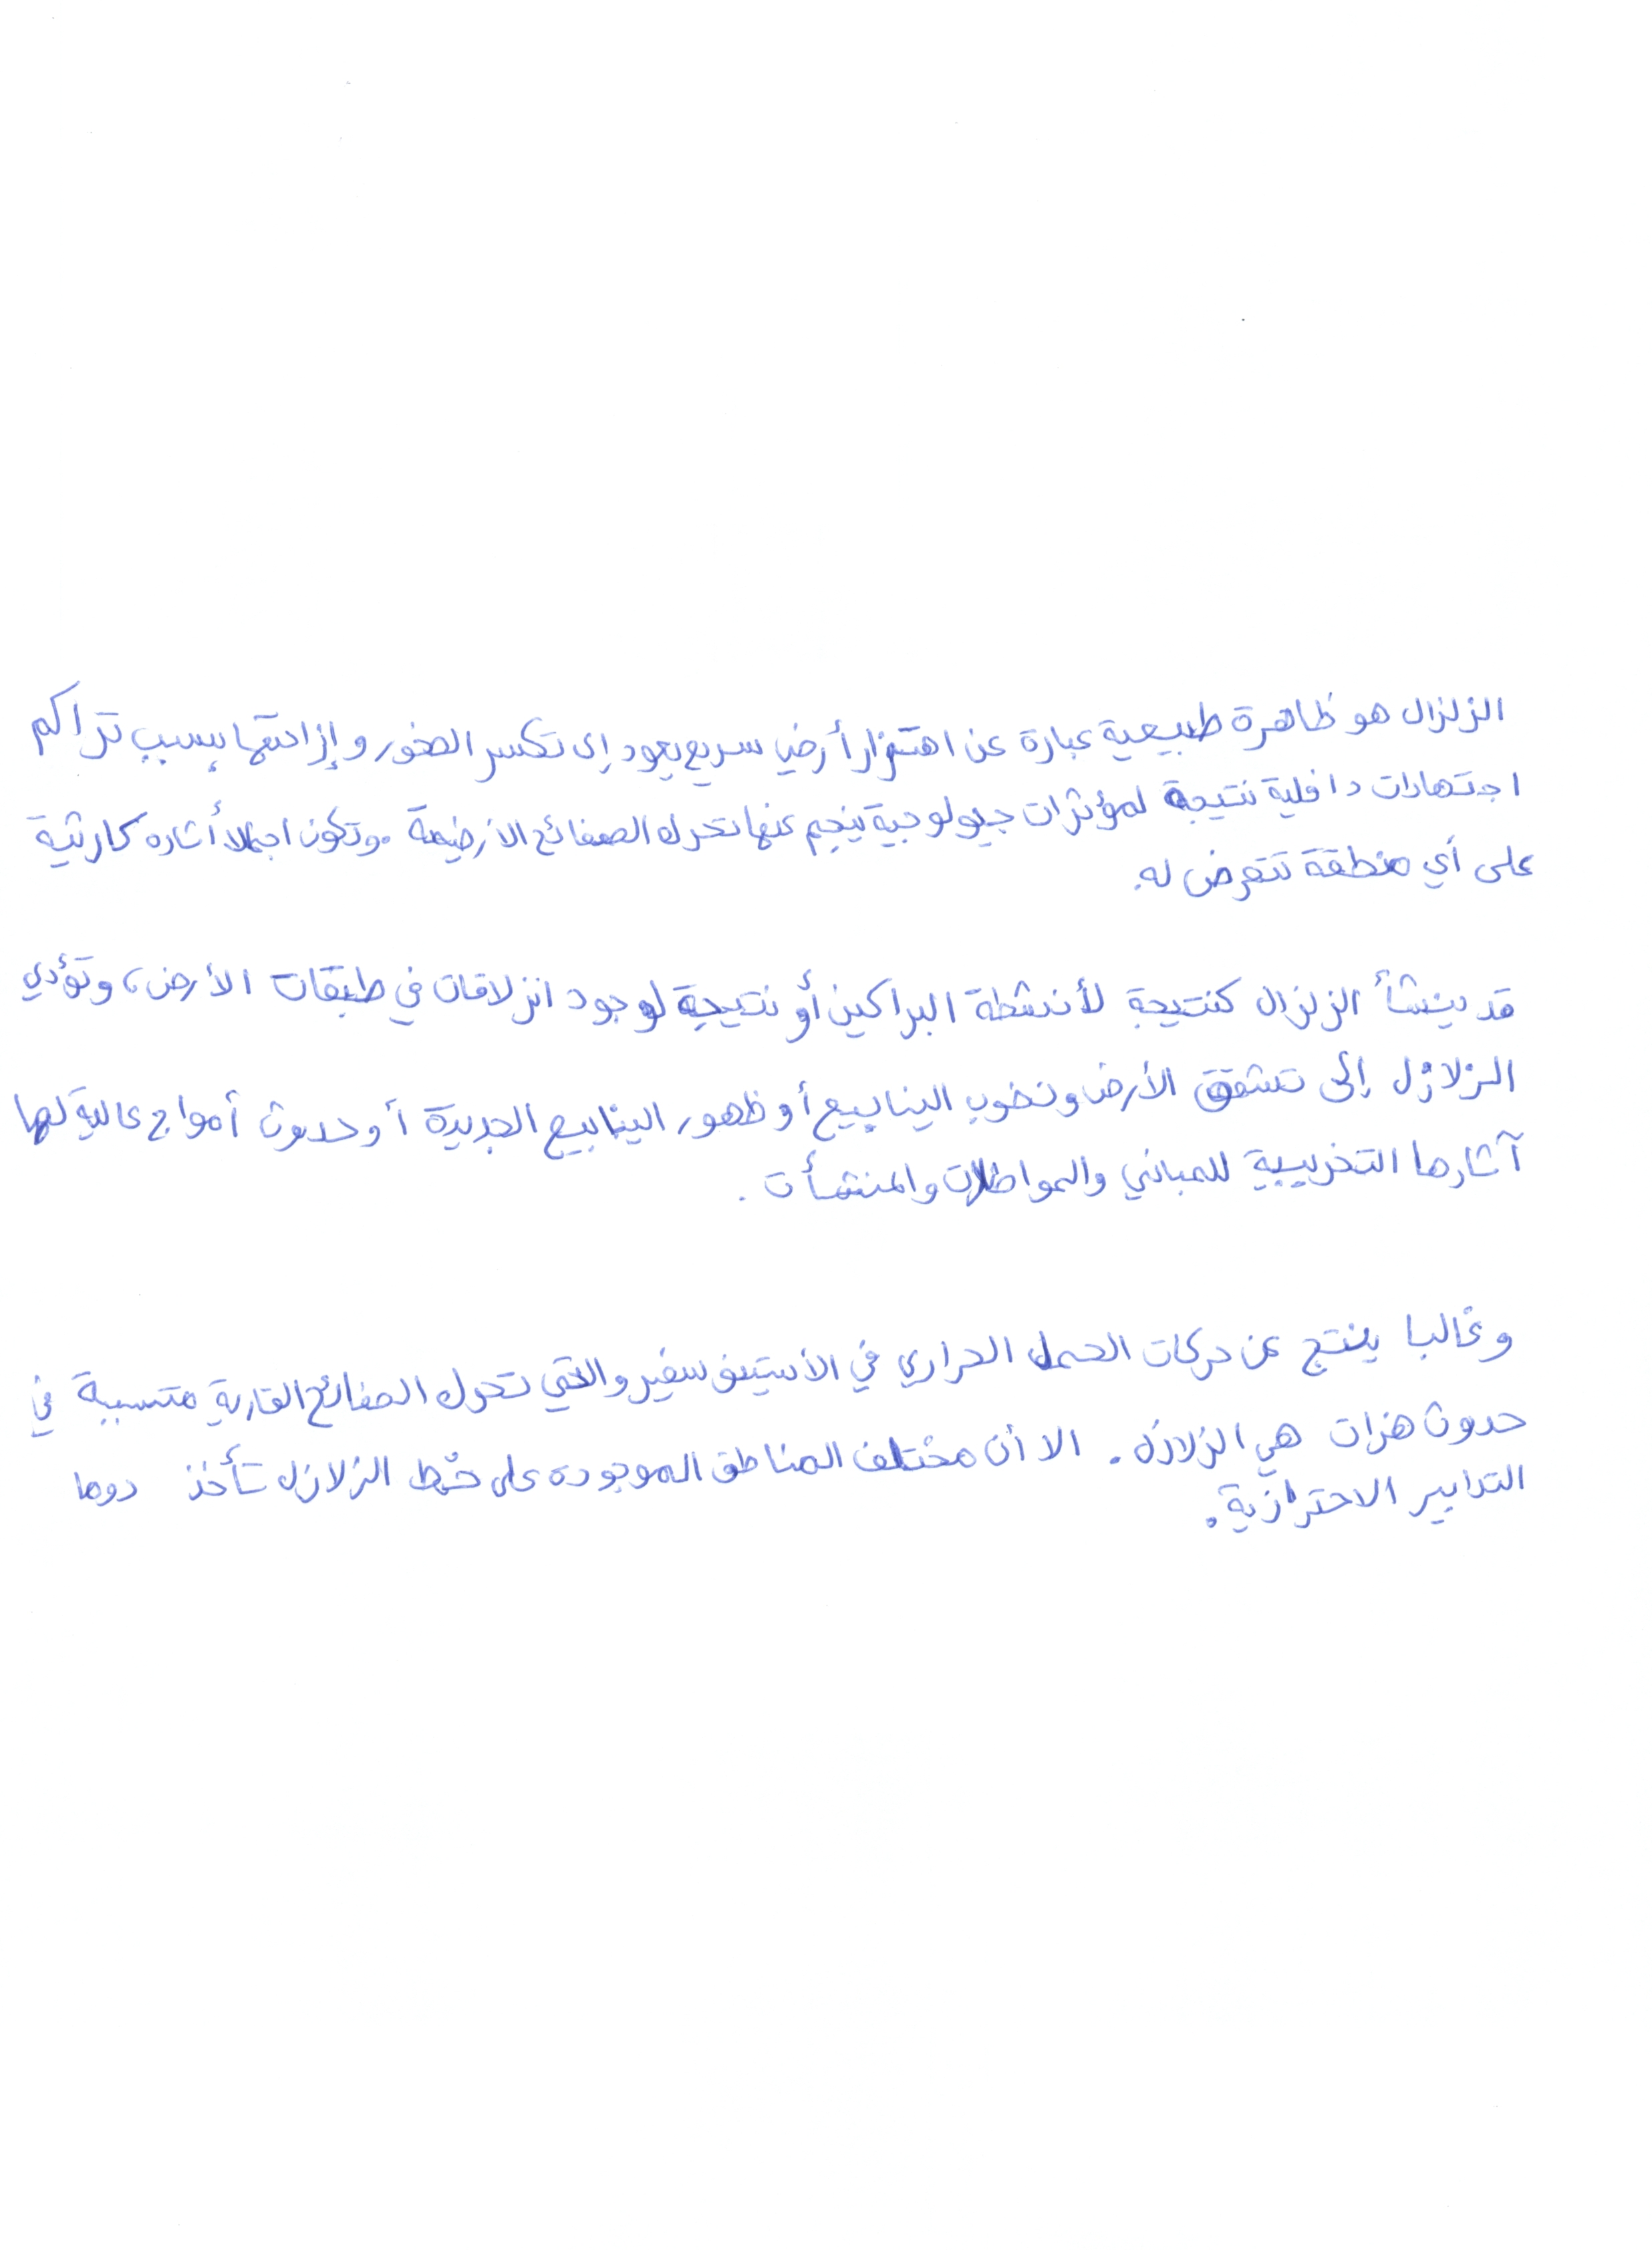 الزلزال هو ظاهرة طبيعية عبارة عن اهتزاز أرضي سريع يعود إلى تكسر الصخور وإزاحتها بسبب تراكم
اجتهادات داخلية نتيجة لمؤثرات جيولوجية ينجم عنها تحرك الصفائح الأرضية. وتكون اجمالا أثاره كارثية
على أي منطقة تتعرض له.
قد ينشأ الزلزال كنتيجة لأنشطة البراكين أو نتيجة لوجود انزلاقات في طبقات الأرض، وتؤدي
الزلازل إلى تشقق الأرض ونضوب الينابيع أو ظهور الينابيع الجديدة أو حدوث أمواج عالية لها
آثارها التخريبية للمباني والمواطلات والمنشأت.
وغالبا ينتج عن حركات الحمل الحراري في الأستينوسفير والتي تحرك الصفائح القارية متسببة في
حدوث هزات هي الزلازل. الا أن مختلف المناطق الموجودة على خط الزلازل تأخذ دوما
التدابير الاحترازية.